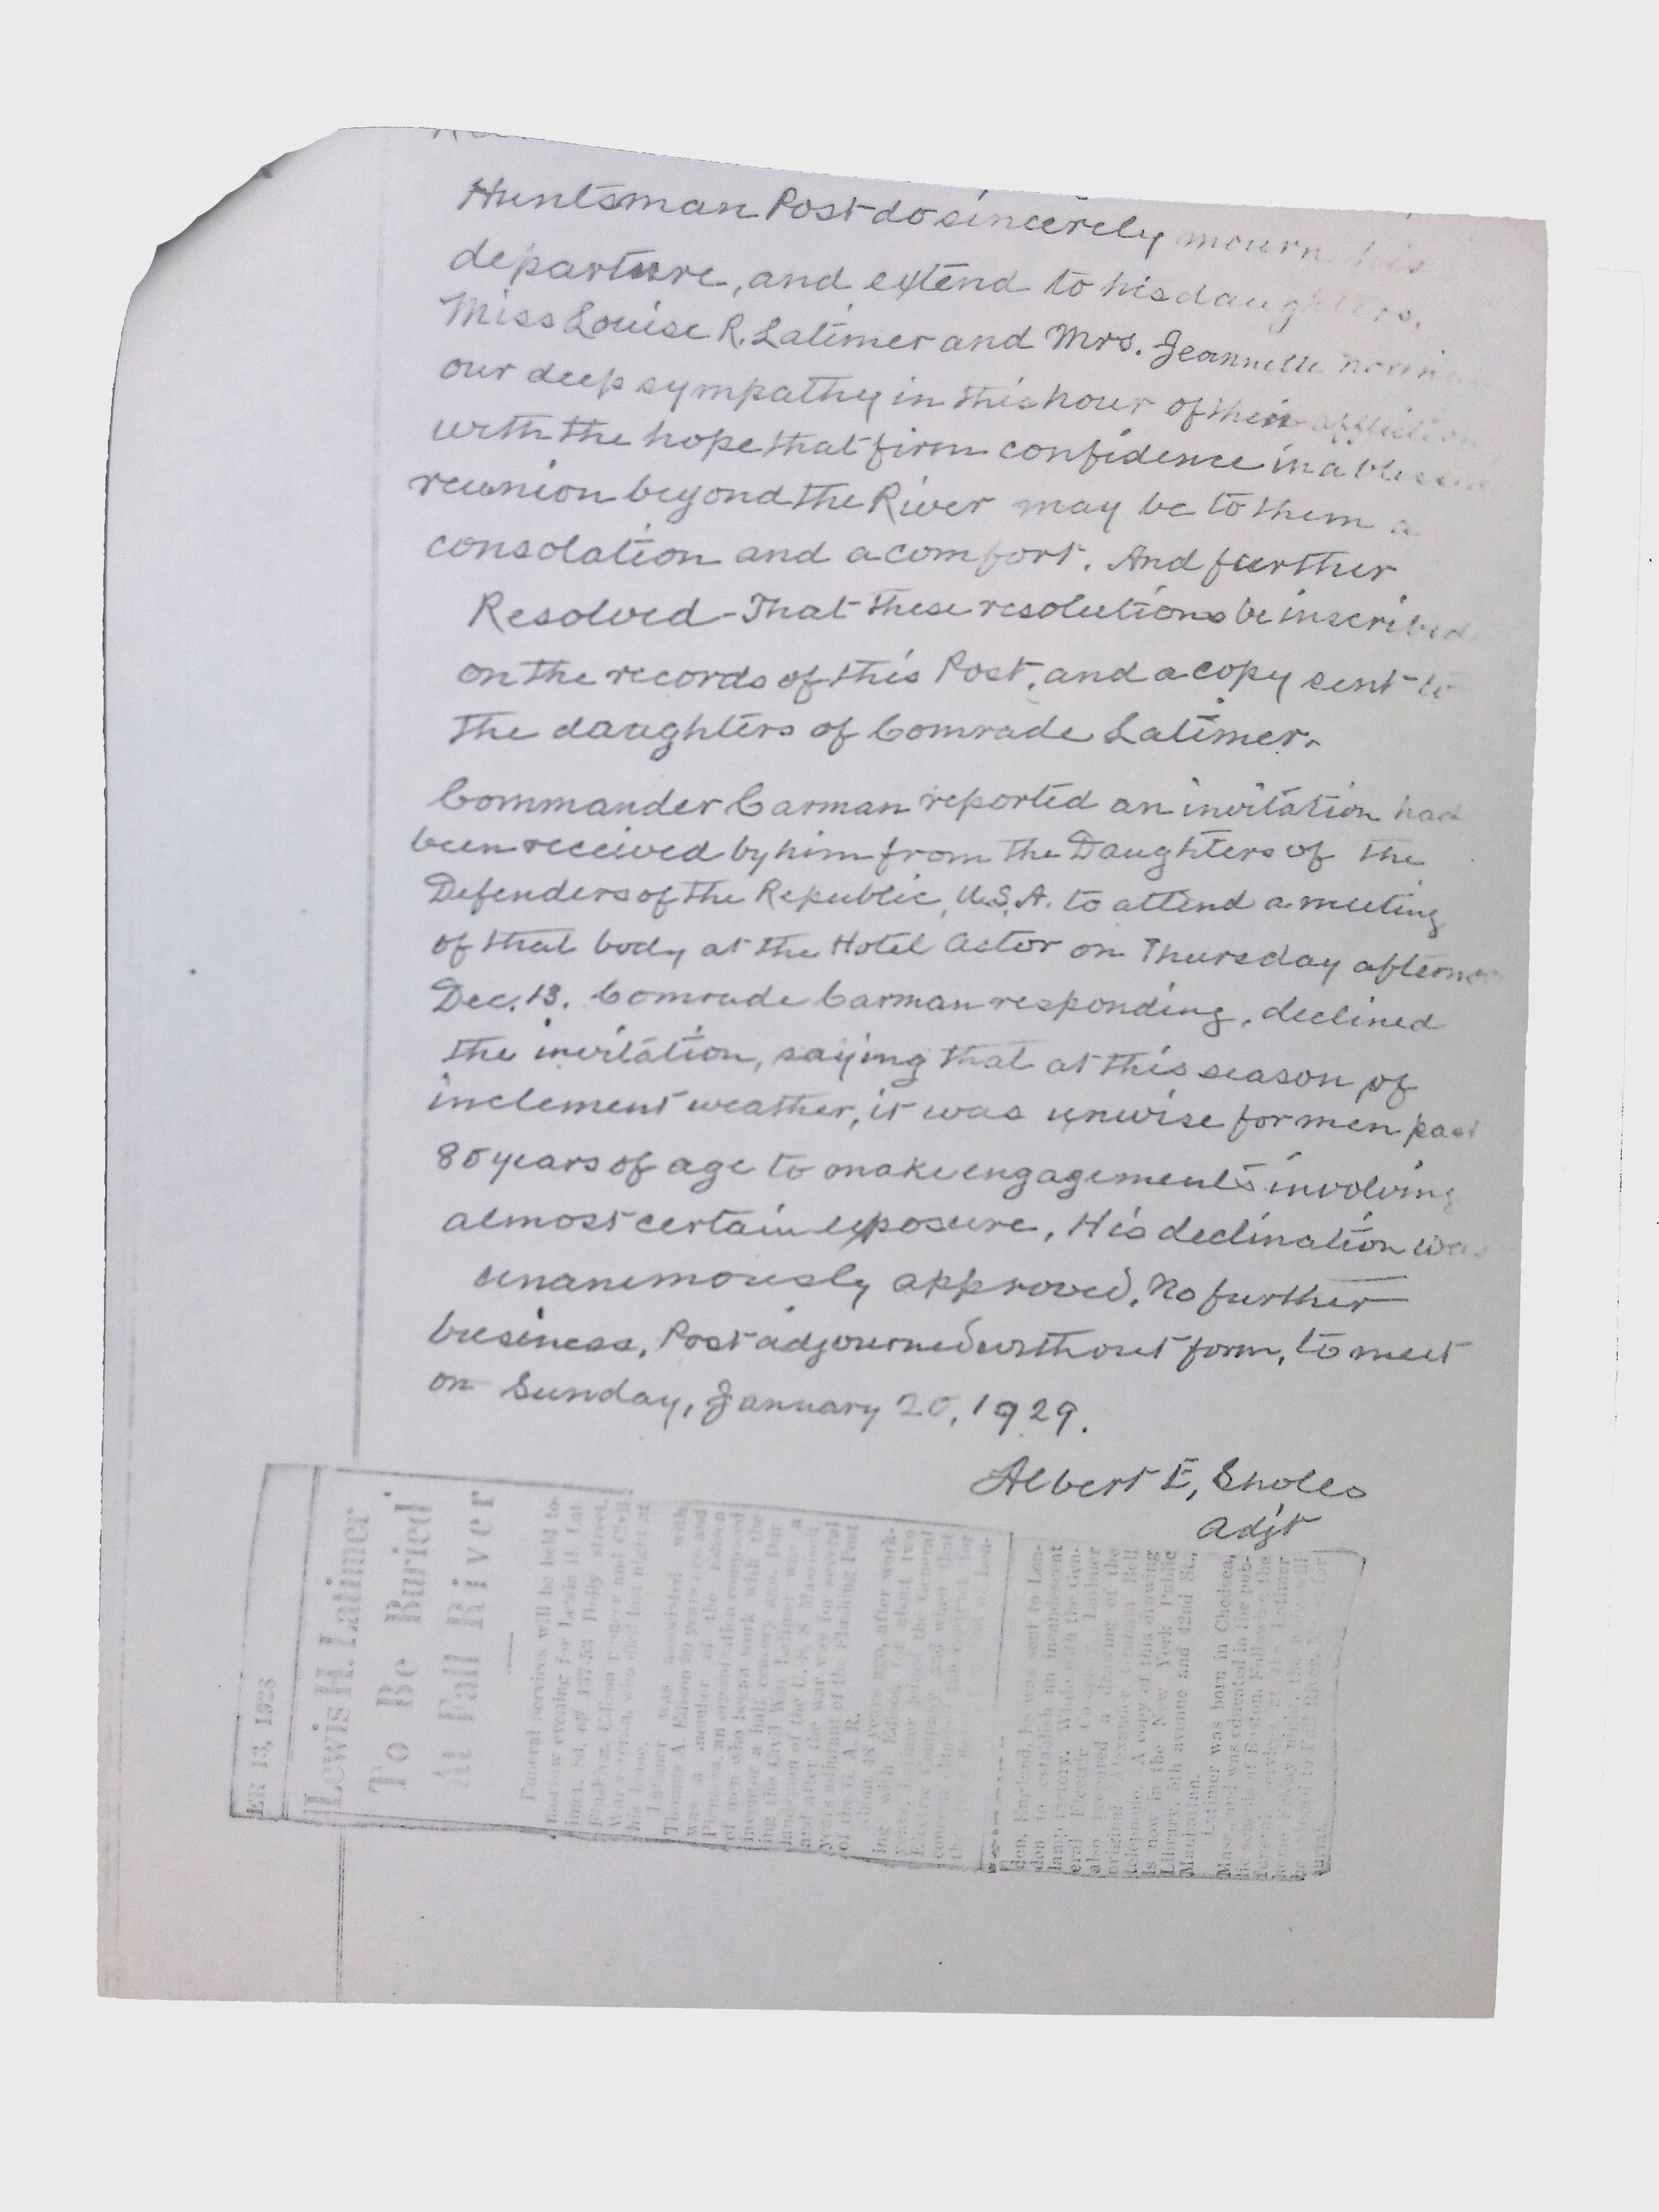 Huntsman Post do sincerely mourn his
departure, and extend to his daughters,
Miss Louise R. Latimer and Mrs. Jeannette
our deep sympathy in this hour of their affliction
with the hope that firm confidence in a blessed
reunion beyond the River may be to them a
consolation and a comfort. And further
Resolved - That these resolutions be inscribed
on the records of this Post, and a copy sent to
the daughters of Comrade Latimer.
Commander Carman reported an invitation had
been received by him from the Daughters of the
Defenders of the Republic, U.S.A. to attend a meeting
of that body at the Hotel Astor on Thursday
Dec. 13. Comrade Carman responding, declined
the invitation, saying that at this season of
inclement weather, it was unwise for men past
80 years of age to make engagements involving
almost certain exposure. His declination was
unanimously approved. No further
business, Post adjourned without form, to meet
on Sunday, January 20, 1929.
Albert E. Sholes
Adjt
ER 13, 1928
Lewis H. Latimer
To Be Buried
At Fall River
Funeral services will be held to-
morrow evening for Lewis H. Lat
imer, 80, of 137-53 Holly street,
Flushing, Edison pioneer and Civil
War veteran, who died last night at
his home.
Latimer was associated with
Thomas A. Edison 50 years ago and
was a member of the Edison
Pioneers, an organization composed
of men who began work with the
inventor a half century ago. Dur-
ing the Civil War Latimer was a
of the U. S. S. Massasoit
and after the war was for several
years adjutant of the Flushing Post
of the G. A. R.
About 48 years ago, after work-
ing with Edison for about two
years, Latimer joined the General
Electric Company and when that
don, England, he was sent to Lon-
don to establish an incandescent
lamp factory. While with the Gen-
eral Electric Latimer
also prepared a drawing of the
original Alexander Graham Bell
telephone. A copy of this drawing
is now in the New York Public
Library, 5th avenue and 42nd St.,
Manhattan.
Latimer was born in Chelsea,
Mass., and was educated in the pub-
lic schools of Boston. Following the
funeral services at the Latimer
home Friday night, the body will
be to Fall River, for
burial.